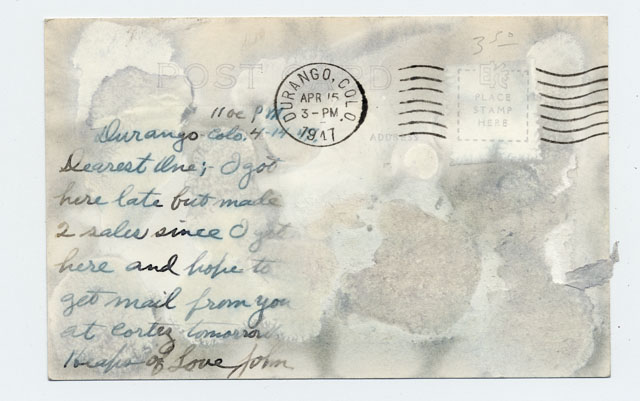 3 50
POST CARD
DURANGO, COLO.
APR 15
3-PM
1947
PLACE
STAMP
HERE
ADDRESS
11oc PM
Durango Colo. 4-14-47
Dearest One;- I got
here late but made
2 sales since I got
here and hope to
get mail from you
at Cortez tomorrow
Heaps of Love John